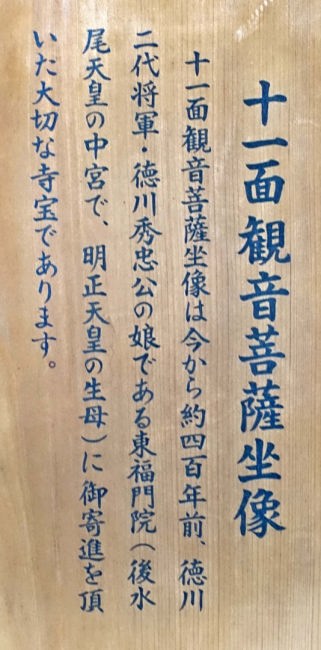 十一面観音菩薩坐像
十一面観音菩薩坐像は今から約四百年前、徳川
二代将軍・徳川秀忠公の娘である東福門院(後水
尾天皇の中宮で、明正天皇の生母)に御寄進を頂
いた大切な寺宝であります。